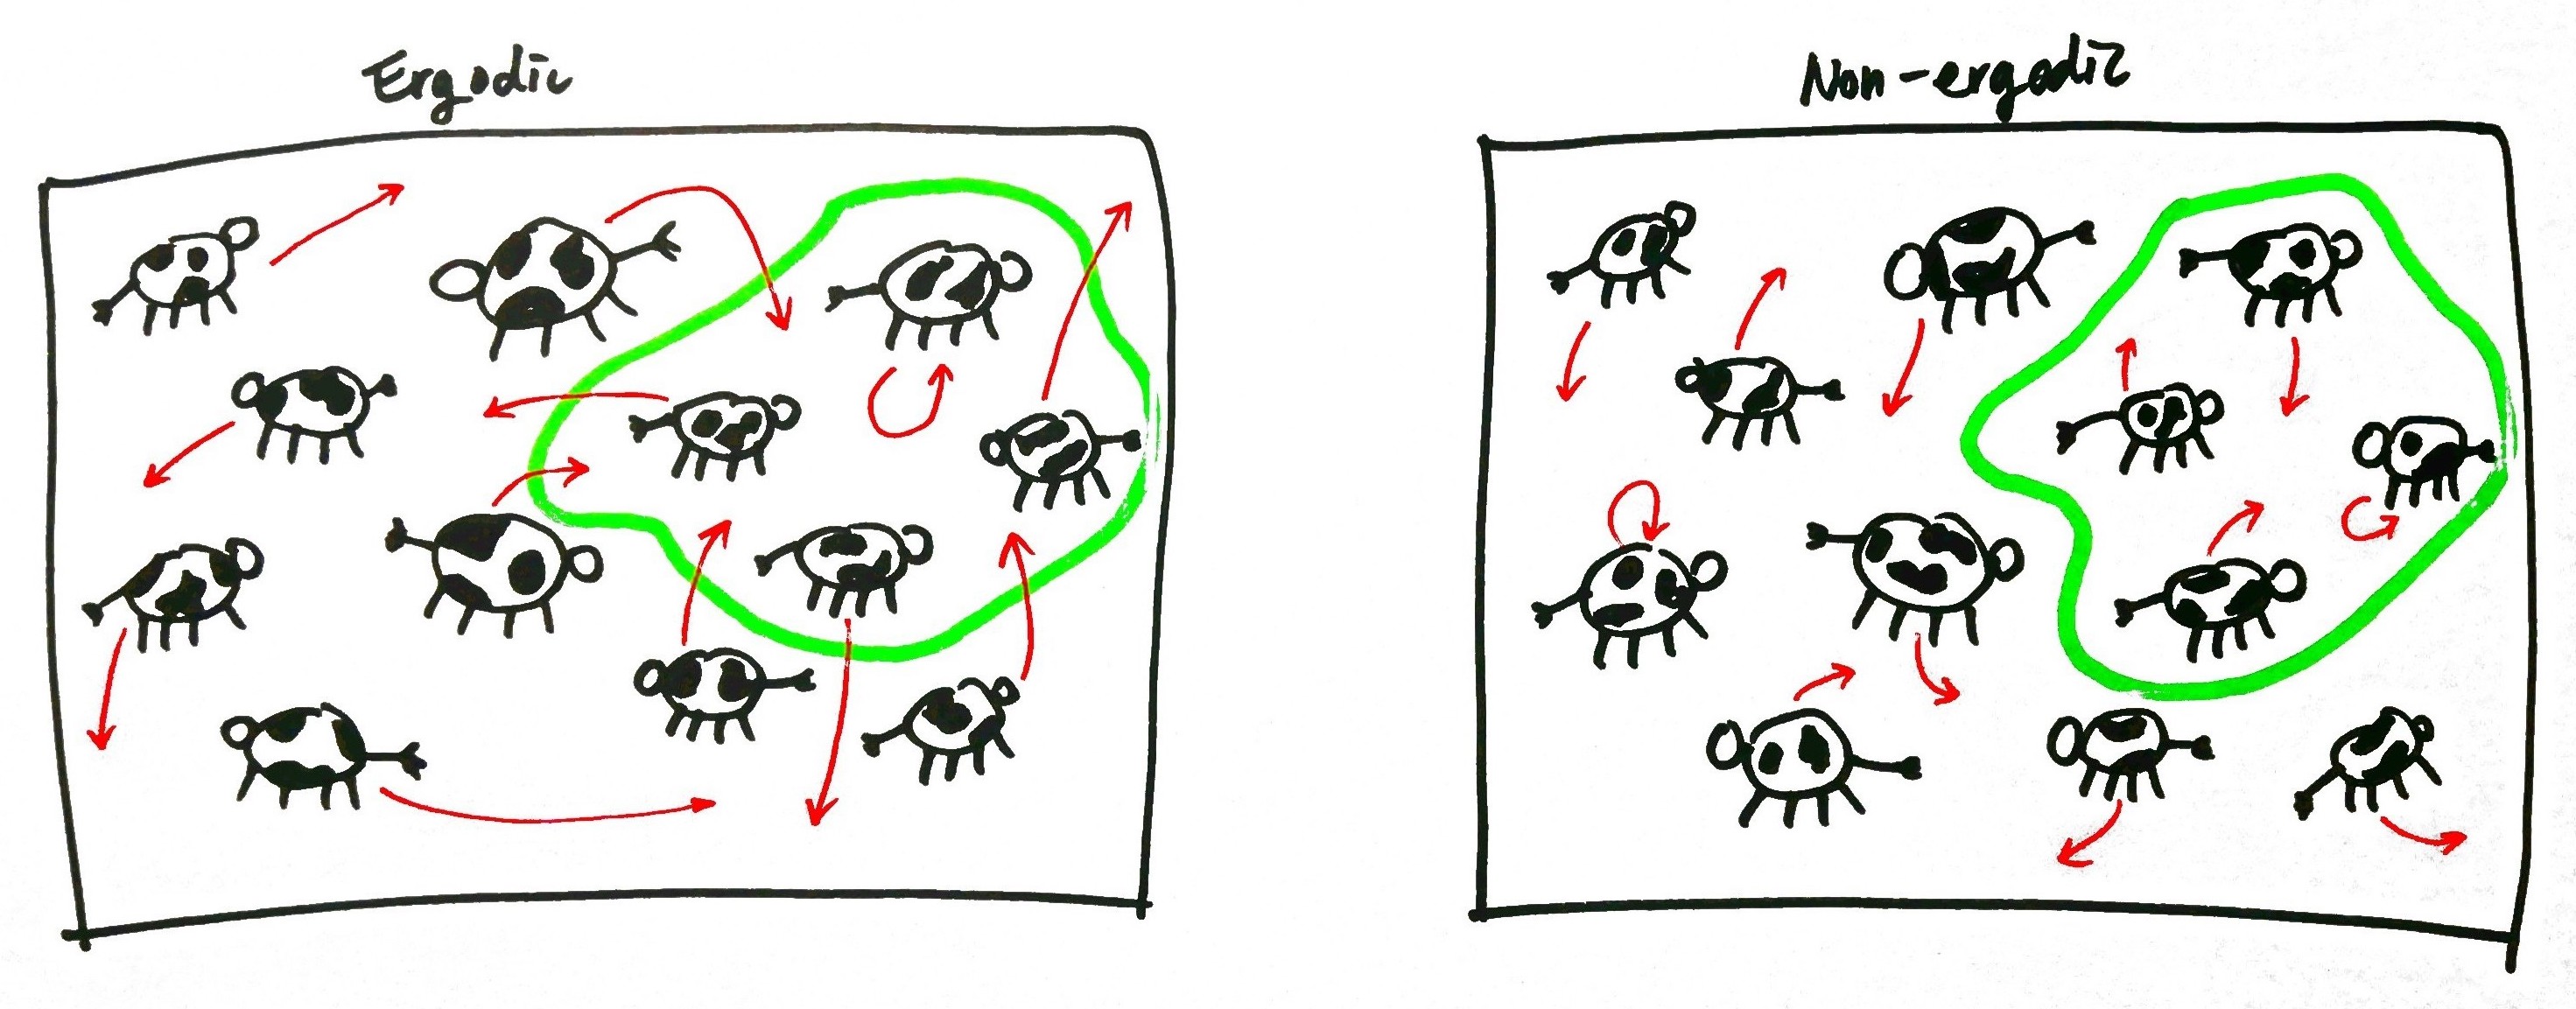 Ergodic
Non-ergodic